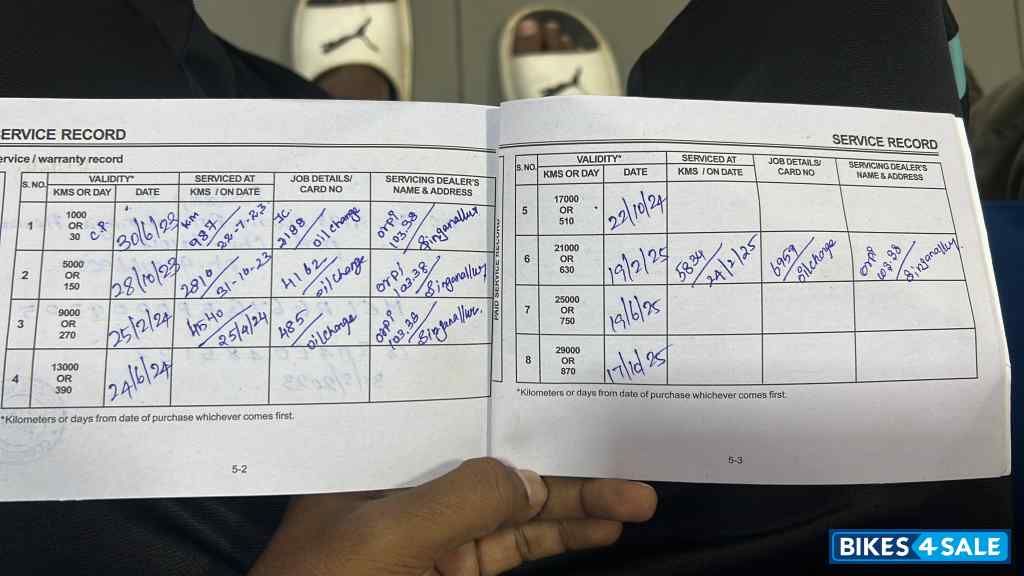 SERVICE RECORD
ervice / warranty record
S. NO. VALIDITY* SERVICED AT JOB DETAILS/ SERVICING DEALER'S
KMS OR DAY DATE KMS / ON DATE CARD NO NAME & ADDRESS
1 1000 OR 30 30/6/23 KM 987 28-7-23 JC 2188 oilchange 103.38 Singanallur
2 5000 OR 150 28/10/23 2810 31-10-23 4162 oilchange 103.38 Singanallur
3 9000 OR 270 25/2/24 4540 25/4/24 485 oilchange 103.38 Singanallur.
4 13000 OR 390 24/6/24
*Kilometers or days from date of purchase whichever comes first.
5-2
PAID SERVICE RECORD
SERVICE RECORD
S. NO. VALIDITY* SERVICED AT JOB DETAILS/ SERVICING DEALER'S
KMS OR DAY DATE KMS / ON DATE CARD NO NAME & ADDRESS
5 17000 OR 510 22/10/24
6 21000 OR 630 19/2/25 5834 24/2/25 6959 oilchange 103.38 Singanallur
7 25000 OR 750 19/6/25
8 29000 OR 870 17/10/25
*Kilometers or days from date of purchase whichever comes first.
5-3
BIKES 4 SALE